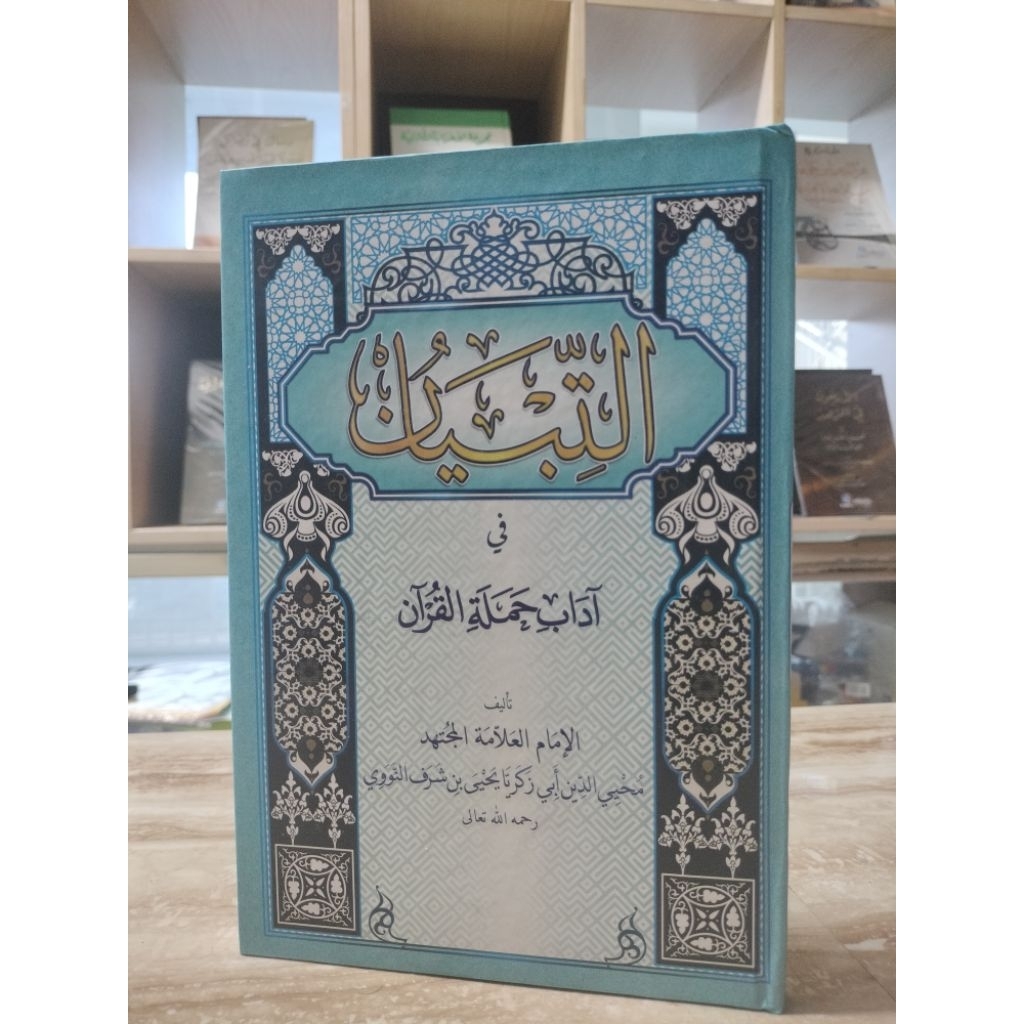 التِّبْيَانُ
في
آدَابِ حَمَلَةِ القُرْآن
تأليف
الإمَام العَلاّمَة المجُتهد
مُحْيِي الدِّين أَبي زَكَرِيَّا يَحْيَى بِن شَرَف النَّوَوِي
رحمه الله تعالى